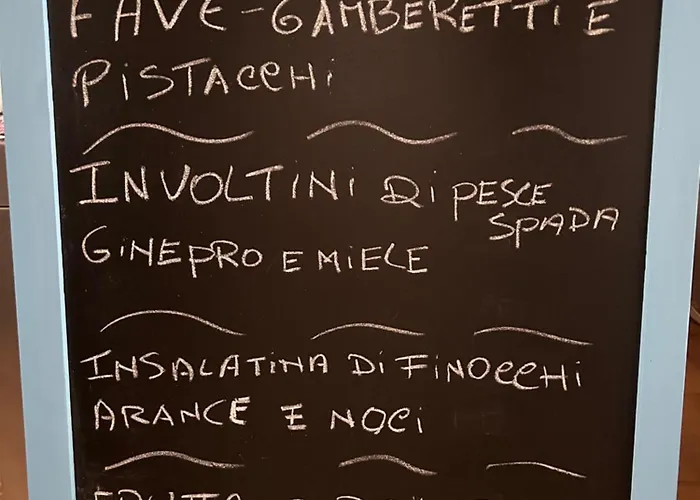 FAVE-GAMBERETTI E
PISTACCHI
INVOLTINI DI PESCE
SPADA
GINEPRO E MIELE
INSALATINA DI FINOCCHI
ARANCE E NOCI